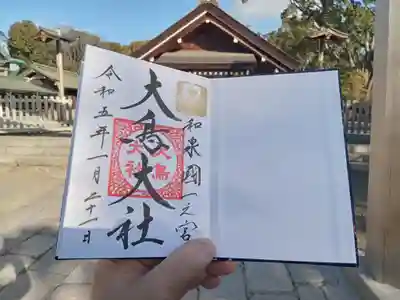 和泉國一之宮
大鳥大社
大鳥
大社
令和五年一月二十一日